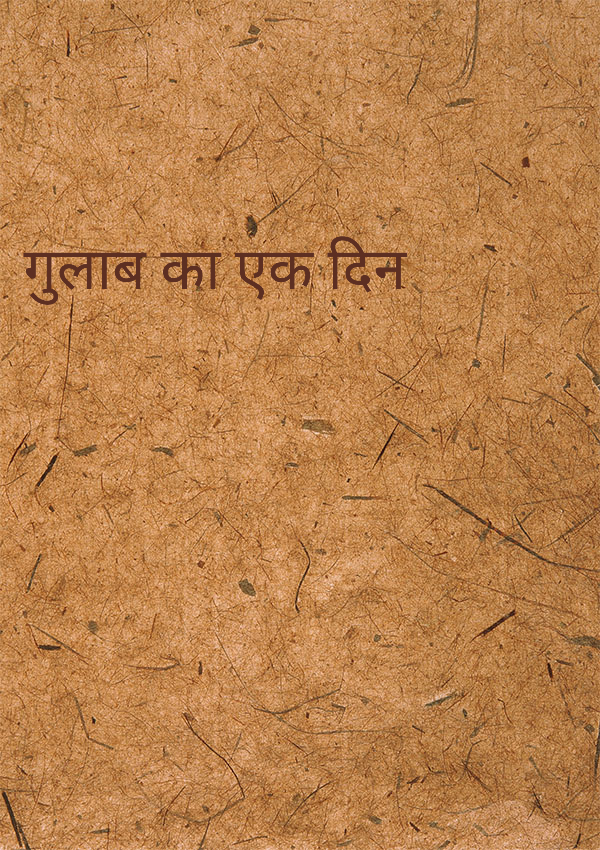 गुलाब का एक दिन